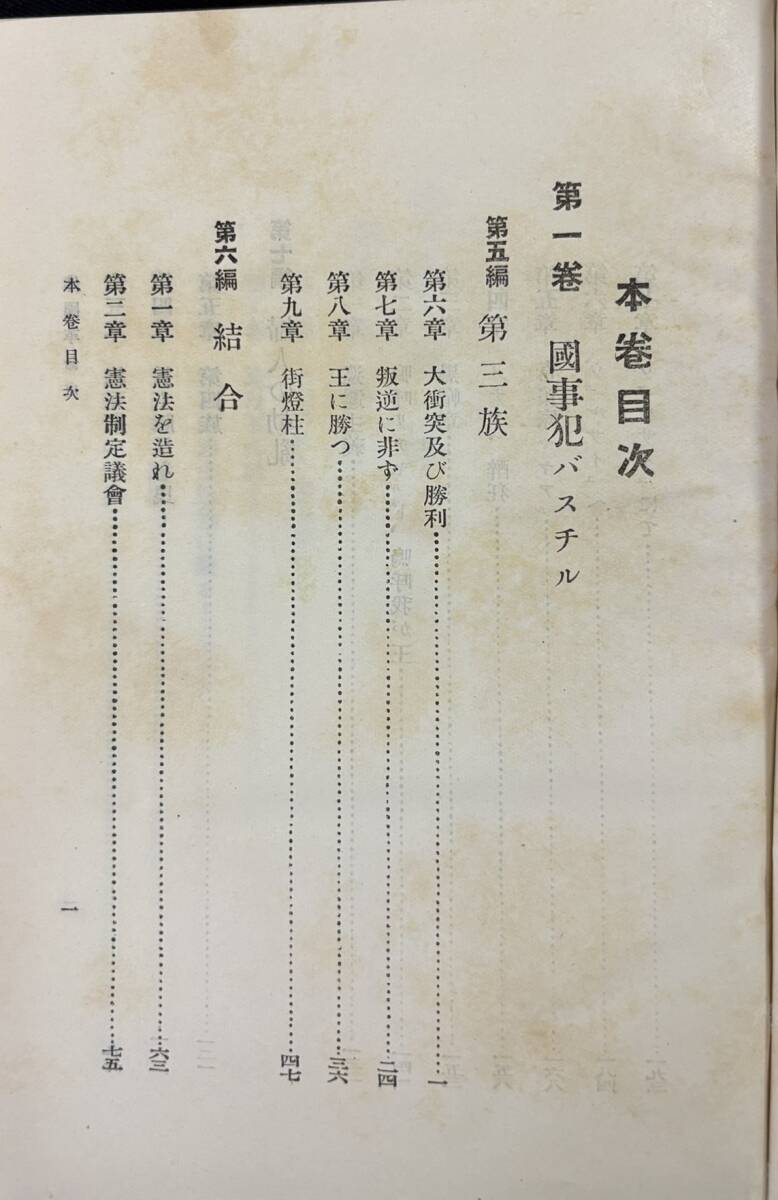 本卷目次
第一卷 國事犯バスチル
第五編 第三族
第六章 大衝突及び勝利……一
第七章 叛逆に非ず……二四
第八章 王に勝つ……三六
第九章 街燈柱……四七
第六編 結合
第一章 憲法を造れ……六三
第二章 憲法制定議會……七五
本卷目次 一